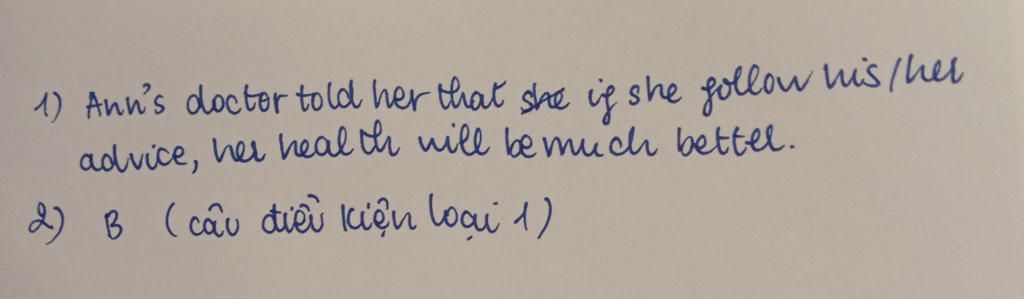 1) Ann's doctor told her that she if she follow his/her
advice, her health will be much better.
2) B (câu điều kiện loại 1)